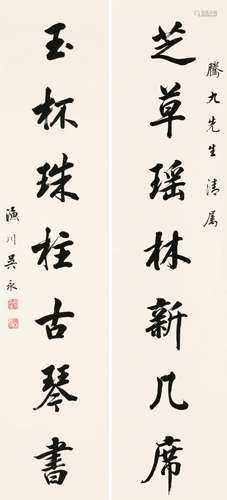 騰九先生清属
芝草瑶林新几席
玉杯珠柱古琴書
漁川吴永